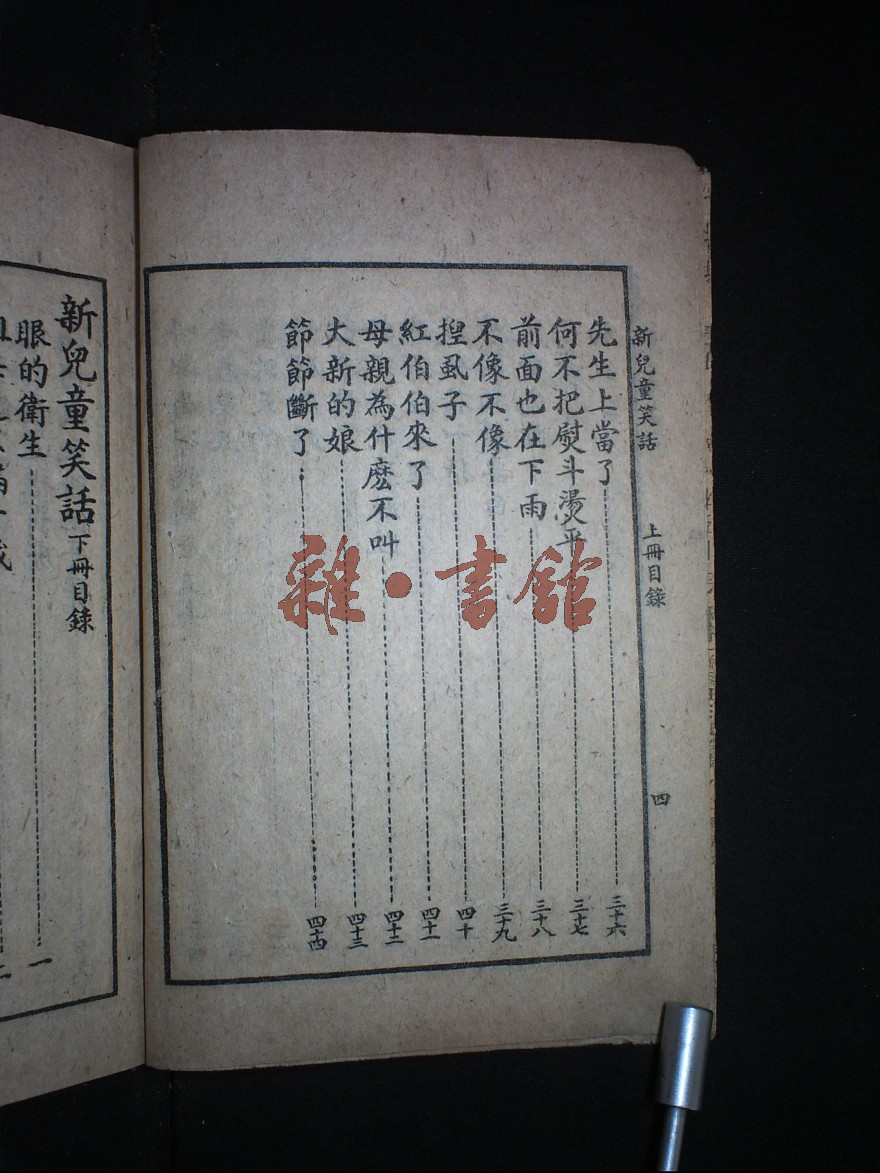 新兒童笑話 上冊目錄 四
先生上當了 三十六
何不把熨斗燙平 三十七
前面也在下雨 三十八
不像不像 三十九
捏虱子 四十
紅伯伯來了 四十一
母親為什麽不叫 四十二
大新的娘 四十三
節節斷了 四十四
雜·書館
新兒童笑話 下冊目錄
眼的衛生 一
二